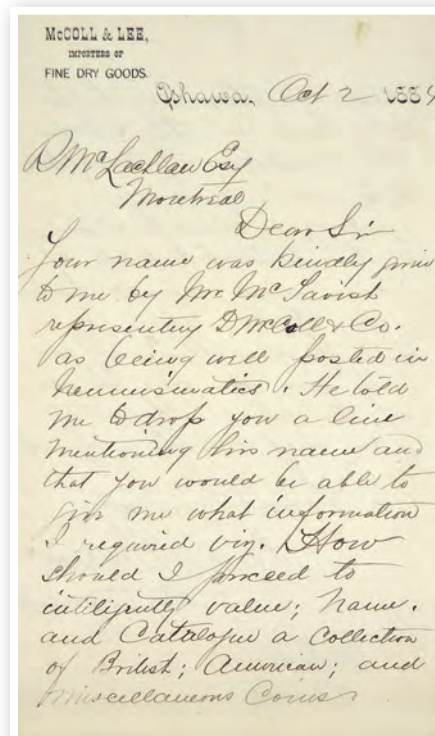 McCOLL & LEE,
IMPORTERS OF
FINE DRY GOODS.
Oshawa, Oct 2 188
McLachlan Esq
Montreal
Dear Sir
Your name was kindly given
to me by Mr. McTavish
representing D McCall & Co.
as being well posted in
Numismatics. He told
me to drop you a line
mentioning his name and
that you would be able to
give me what information
I required viz. How
should I proceed to
intiligently value; name.
and Catalogue a Collection
of British; American; and
Miscellaneous Coins